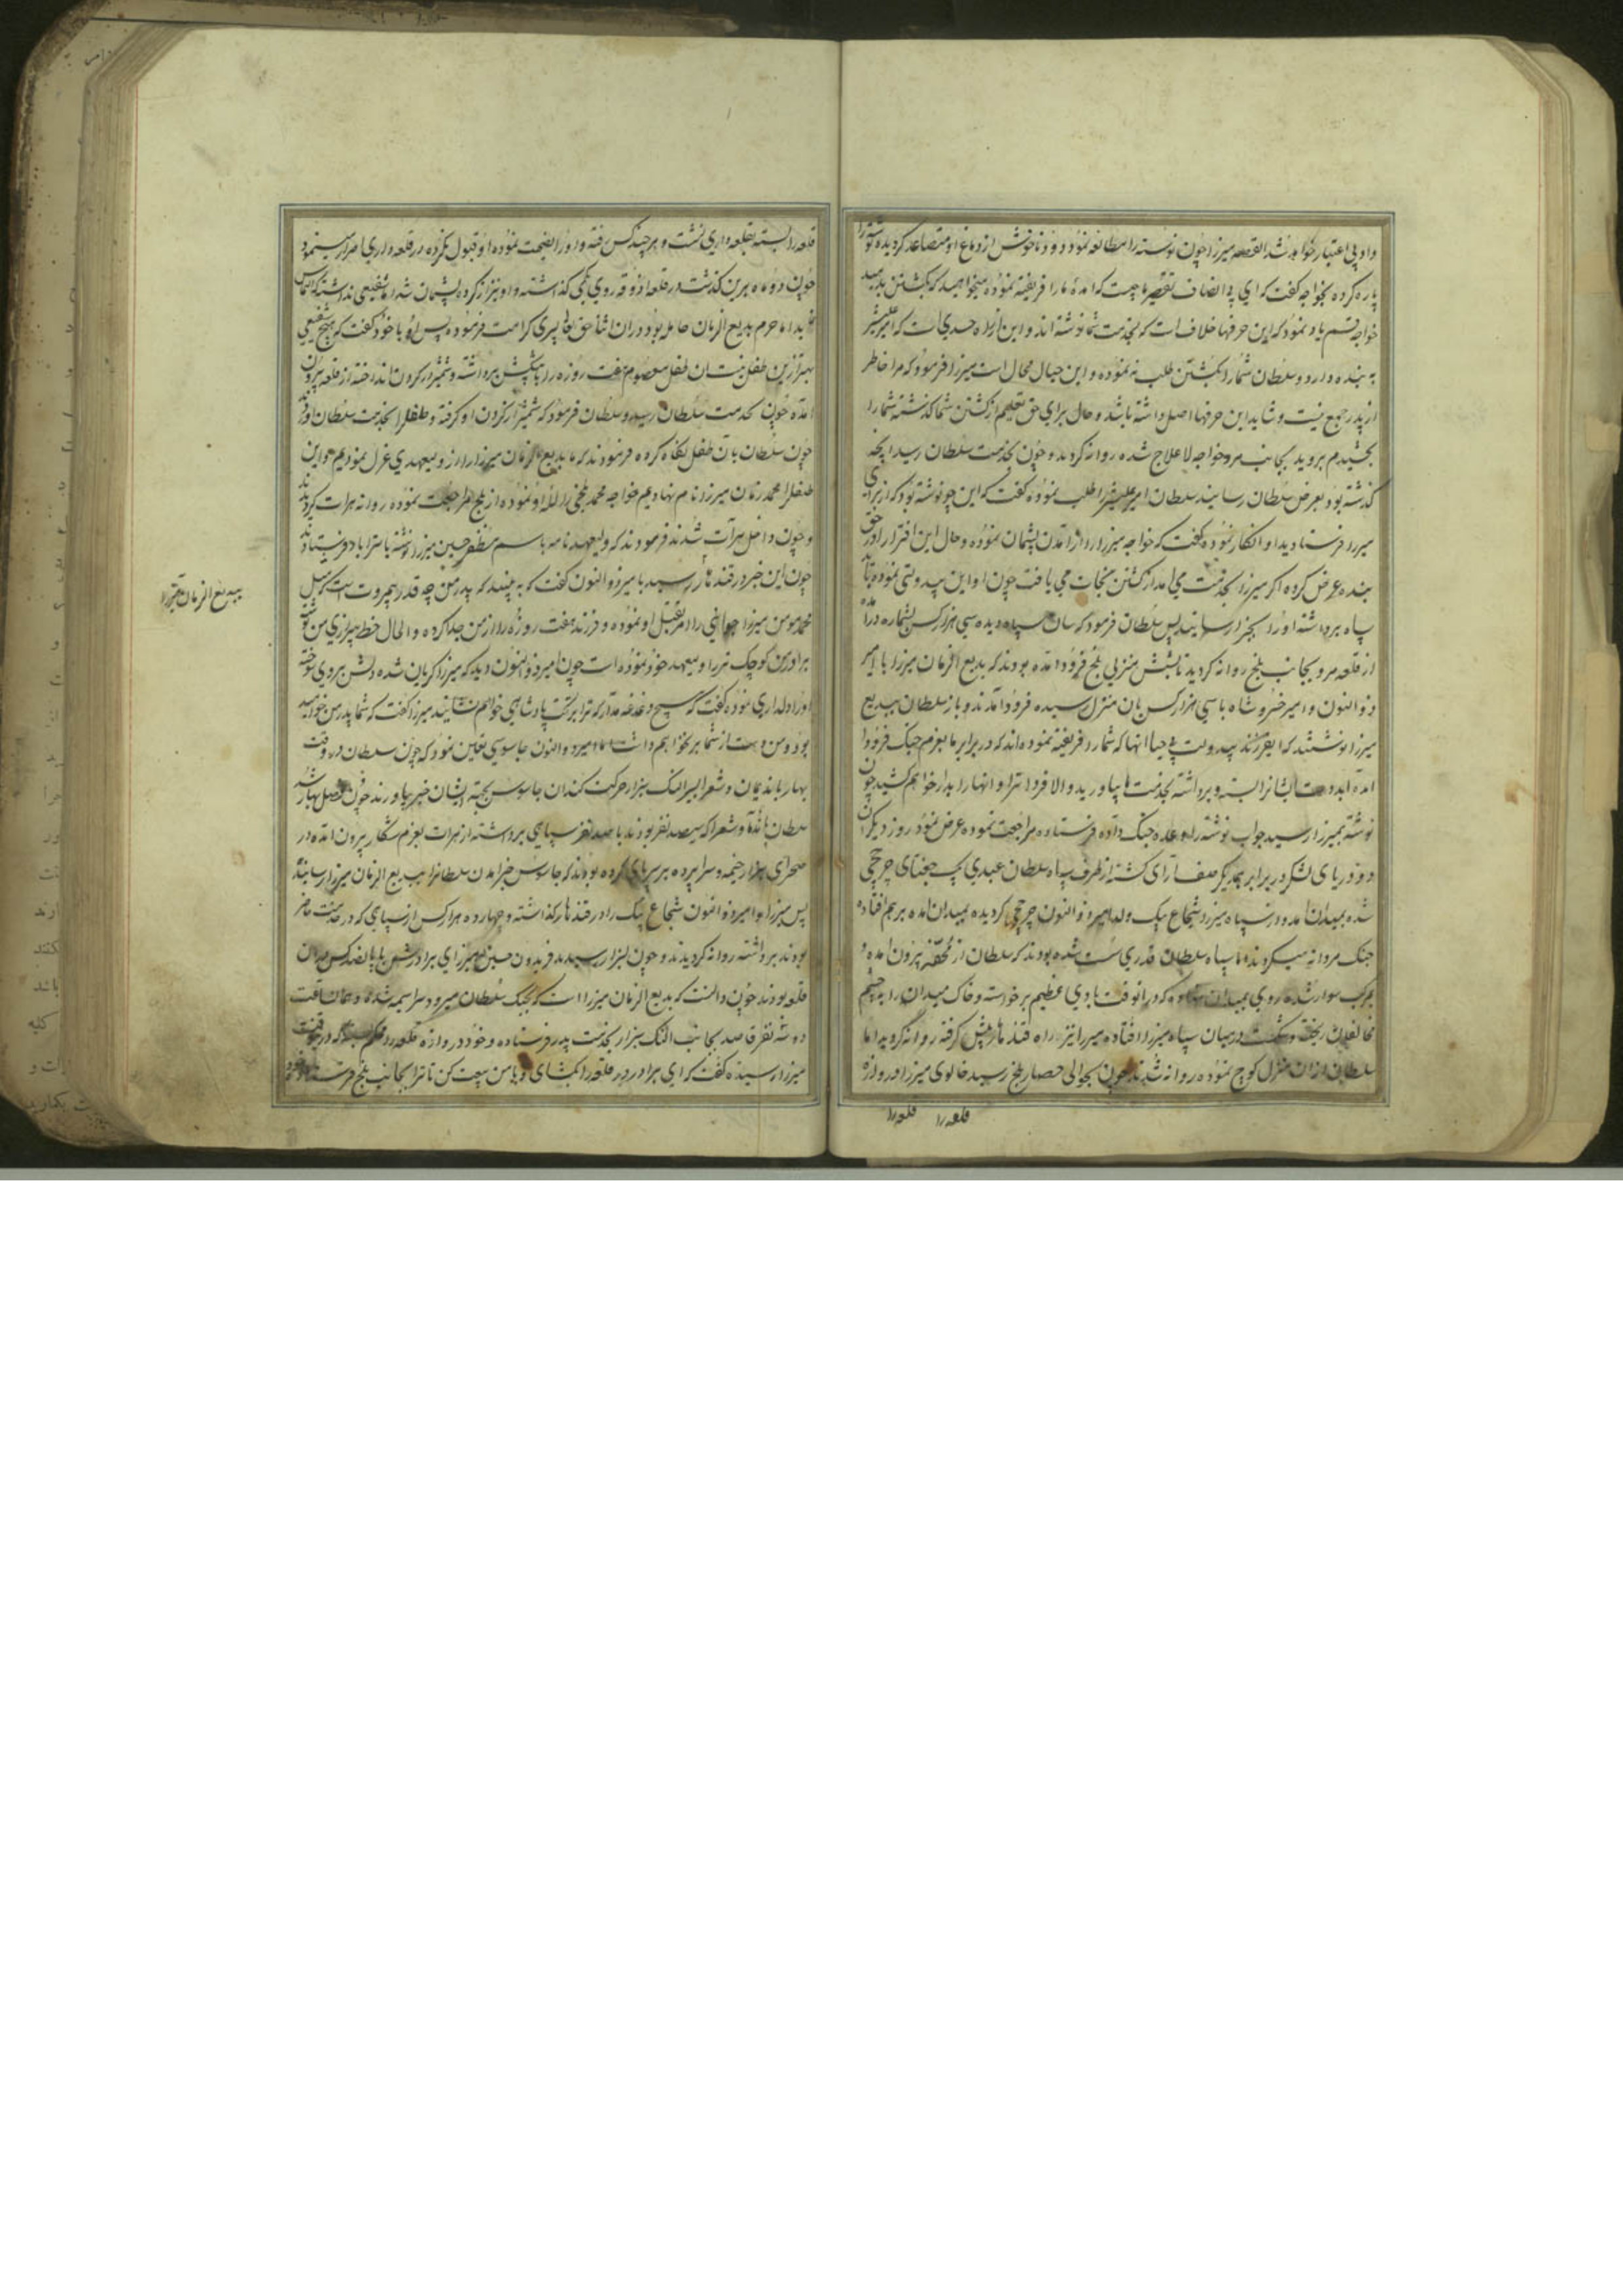 واو بی اعتبار خواهد شد القصه میرزا چون نوشته را مطالعه نمود دود ناخوش از دماغ او متصاعد کردیده نوشته را
پاره کرده بخواجه کفت که ای بی انصاف تقصیر ما چیست که آمدهٔ ما را فریفته نموده میخواهید که بکشتن بدهید
خواجه قسم یاد نمود که این حرفها خلاف است که بخدمت شما نوشته اند و این از راه حسدی است که امیر علیشیر
به بنده دارد و سلطان شما را بکشتن طلب نه نموده و این خیال محال است میرزا فرمود که مرا خاطر
از پدر جمع نیست و شاید این حرفها اصل داشته باشد و حال برای حق تعلیم از کشتن شما کذشته شما را
بخشیدم بروید بجانب مرو خواجه لا علاج شده روانه کردید و چون بخدمت سلطان رسید آنچه
کذشته بود بعرض سلطان رسانید سلطان امیر علیشیر را طلب نموده کفت که این چه نوشته بود که از برای
میرزا فرستادید او انکار نموده کفت که خواجه میرزا را از آمدن پشیمان نموده و حال این افترا را در حق
بنده عرض کرده اکر میرزا بخدمت می آمد از کشتن نجات می یافت چون او این بیدولتی نموده باید
سپاه برداشته او را بجزا رسانید پس سلطان فرمود که سان سپاه دیده سی هزار کس بشماره درآمده
از قلعه مرو بجانب بلخ روانه کردید تا بشش منزلی بلخ فرود آمده بودند که بدیع الزمان میرزا با امیر
ذوالنون و امیر خسرو شاه با سی هزار کس بان منزل رسیده فرود آمدند و باز سلطان ببدیع
میرزا نوشتند که ای فرزند بیدولت بی حیا آنها که شما را فریفته نموده اند که در برابر ما بعزم جنک فرود
آمده اید دست ایشانرا بسته و برداشته بخدمت ما بیاورید و الا فردا ترا و آنها را بدار خواهم کشید چون
نوشته بمیرزا رسید جواب نوشته را وعده جنک داده فرستاده مراجعت نموده عرض نمود روز دیکر آن
دو دریای لشکر در برابر یکدیکر صف آرای کشته از طرف سپاه سلطان عبدی بیک جغتای چرخچی
شده بمیدان آمد و از سپاه میرزا شجاع بیک ولد امیر ذوالنون چرخچی کردیده بمیدان آمده برهم افتاده
جنک مردانه میکردند اما سپاه سلطان قدری سست شده بودند که سلطان از محفه بیرون آمده و
بمرکب سوار شده روی بمیدان نهاد که در آنوقت بادی عظیم برخواسته و خاک میدان را بچشم
مخالفان ریخته و شکست در میان سپاه میرزا افتاده میرزا نیز راه قندهار پیش کرفته روانه کردید اما
سلطان از آن منزل کوچ نموده روانه شدند چون بحوالی حصار بلخ رسید خالوی میرزا دروازه
قلعه را قلعه را
قلعه را بسته بقلعه داری نشست و هر چند کس رفته و او را نصیحت نموده او قبول نکرده در قلعه داری اصرار مینمود
چون دو ماه برین کذشت در قلعه آذوقه روی بکمی کذاشته و او نیز از کرده پشیمان شد اما شفیعی نداشت که التماس
نماید اما حرم بدیع الزمان حامله بود در آن اثنا حق تعالی پسری کرامت فرموده پس او با خود کفت که هیچ شفیعی
بهتر ازین طفل نیست آن طفل معصوم هفت روزه را با پیشکش برداشته و شمشیر در کردن انداخته از قلعه بیرون
آمده چون بخدمت سلطان رسید و سلطان فرمود که شمشیر از کردن او کرفته و طفل را بخدمت سلطان آوردند
چون سلطان بآن طفل نکاه کرده فرمودند که ما بدیع الزمان میرزا را از ولیعهدی عزل نمودیم و این
طفل را محمد زمان میرزا نام نهادیم خواجه محمد نجفی را لله او نموده از بلخ مراجعت نموده روانه هرات کردیدند
و چون داخل هرات شدند فرمودند که ولیعهدنامه باسم مظفر حسین میرزا نوشته باستراباد فرستادند
چون این خبر در قندهار رسید بامیر ذوالنون کفت که به بینید که پدر من چه قدر بیمروت است که مثل
محمد مومن میرزا جوانی را در عقب قتل او نموده و فرزند هفت روزه را از من جدا کرده و الحال خط بیزاری من نوشته
برادر من کوچک‌تر را ولیعهد خود نموده است چون امیر ذوالنون دید که میرزا کریان شده دلش بروی سوخته
او را دلداری نموده کفت که هیچ دغدغه مدار که ترا بر تخت پادشاهی خواهم نشانید میرزا کفت که شما پدر من خواهید
بود و من دست از شما بر نخواهم داشت اما امیر ذوالنون جاسوسی تعیین نمود که چون سلطان در وقت
بهار با ندیمان و شعرا بسیر النک نیزار حرکت کند آن جاسوس بجهت ایشان خبر بیاورند چون فصل بهار شد
سلطان با ندما و شعرا که سیصد نفر بودند با صد نفر سپاهی برداشته از هرات بعزم شکار بیرون آمده در
صحرای نیزار خیمه و سراپرده بر سرپای کرده بودند که جاسوس خبر آمدن سلطانرا ببدیع الزمان میرزا رسانیدند
پس میرزا و امیر ذوالنون شجاع بیک را در قندهار کذاشته و چهارده هزار کس از سپاهی که در خدمت حاضر
بودند برداشته روانه کردیدند و چون بنیزار رسیدند فریدون حسین میرزای برادرش با پانصد کس در آن
قلعه بودند چون دانست که بدیع الزمان میرزا است که بجنک سلطان میرود سراسیمه شده و همان ساعت
دو سه نفر قاصد بجانب النک نیزار بخدمت پدر فرستاده و خود دروازه قلعه را محکم بست که در آنوقت
میرزا رسیده کفت که ای برادر در قلعه را بکشای و با من بیعت کن تا ترا بجانب بلخ فرستاده
ببدیع الزمان میرزا